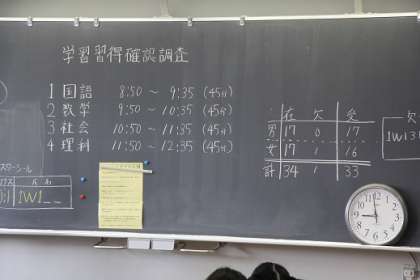 学習習得確認調査
1 国語 8:50 ～ 9:35 (45分)
2 数学 9:50 ～ 10:35 (45分)
3 社会 10:50 ～ 11:35 (45分)
4 理科 11:50 ～ 12:35 (45分)
在 欠 受
男 17 0 17
女 17 1 16
計 34 1 33
欠
1W13
スターシール
クラス 氏名
1W1__
12 1 2 3 4 5 6 7 8 9 10 11